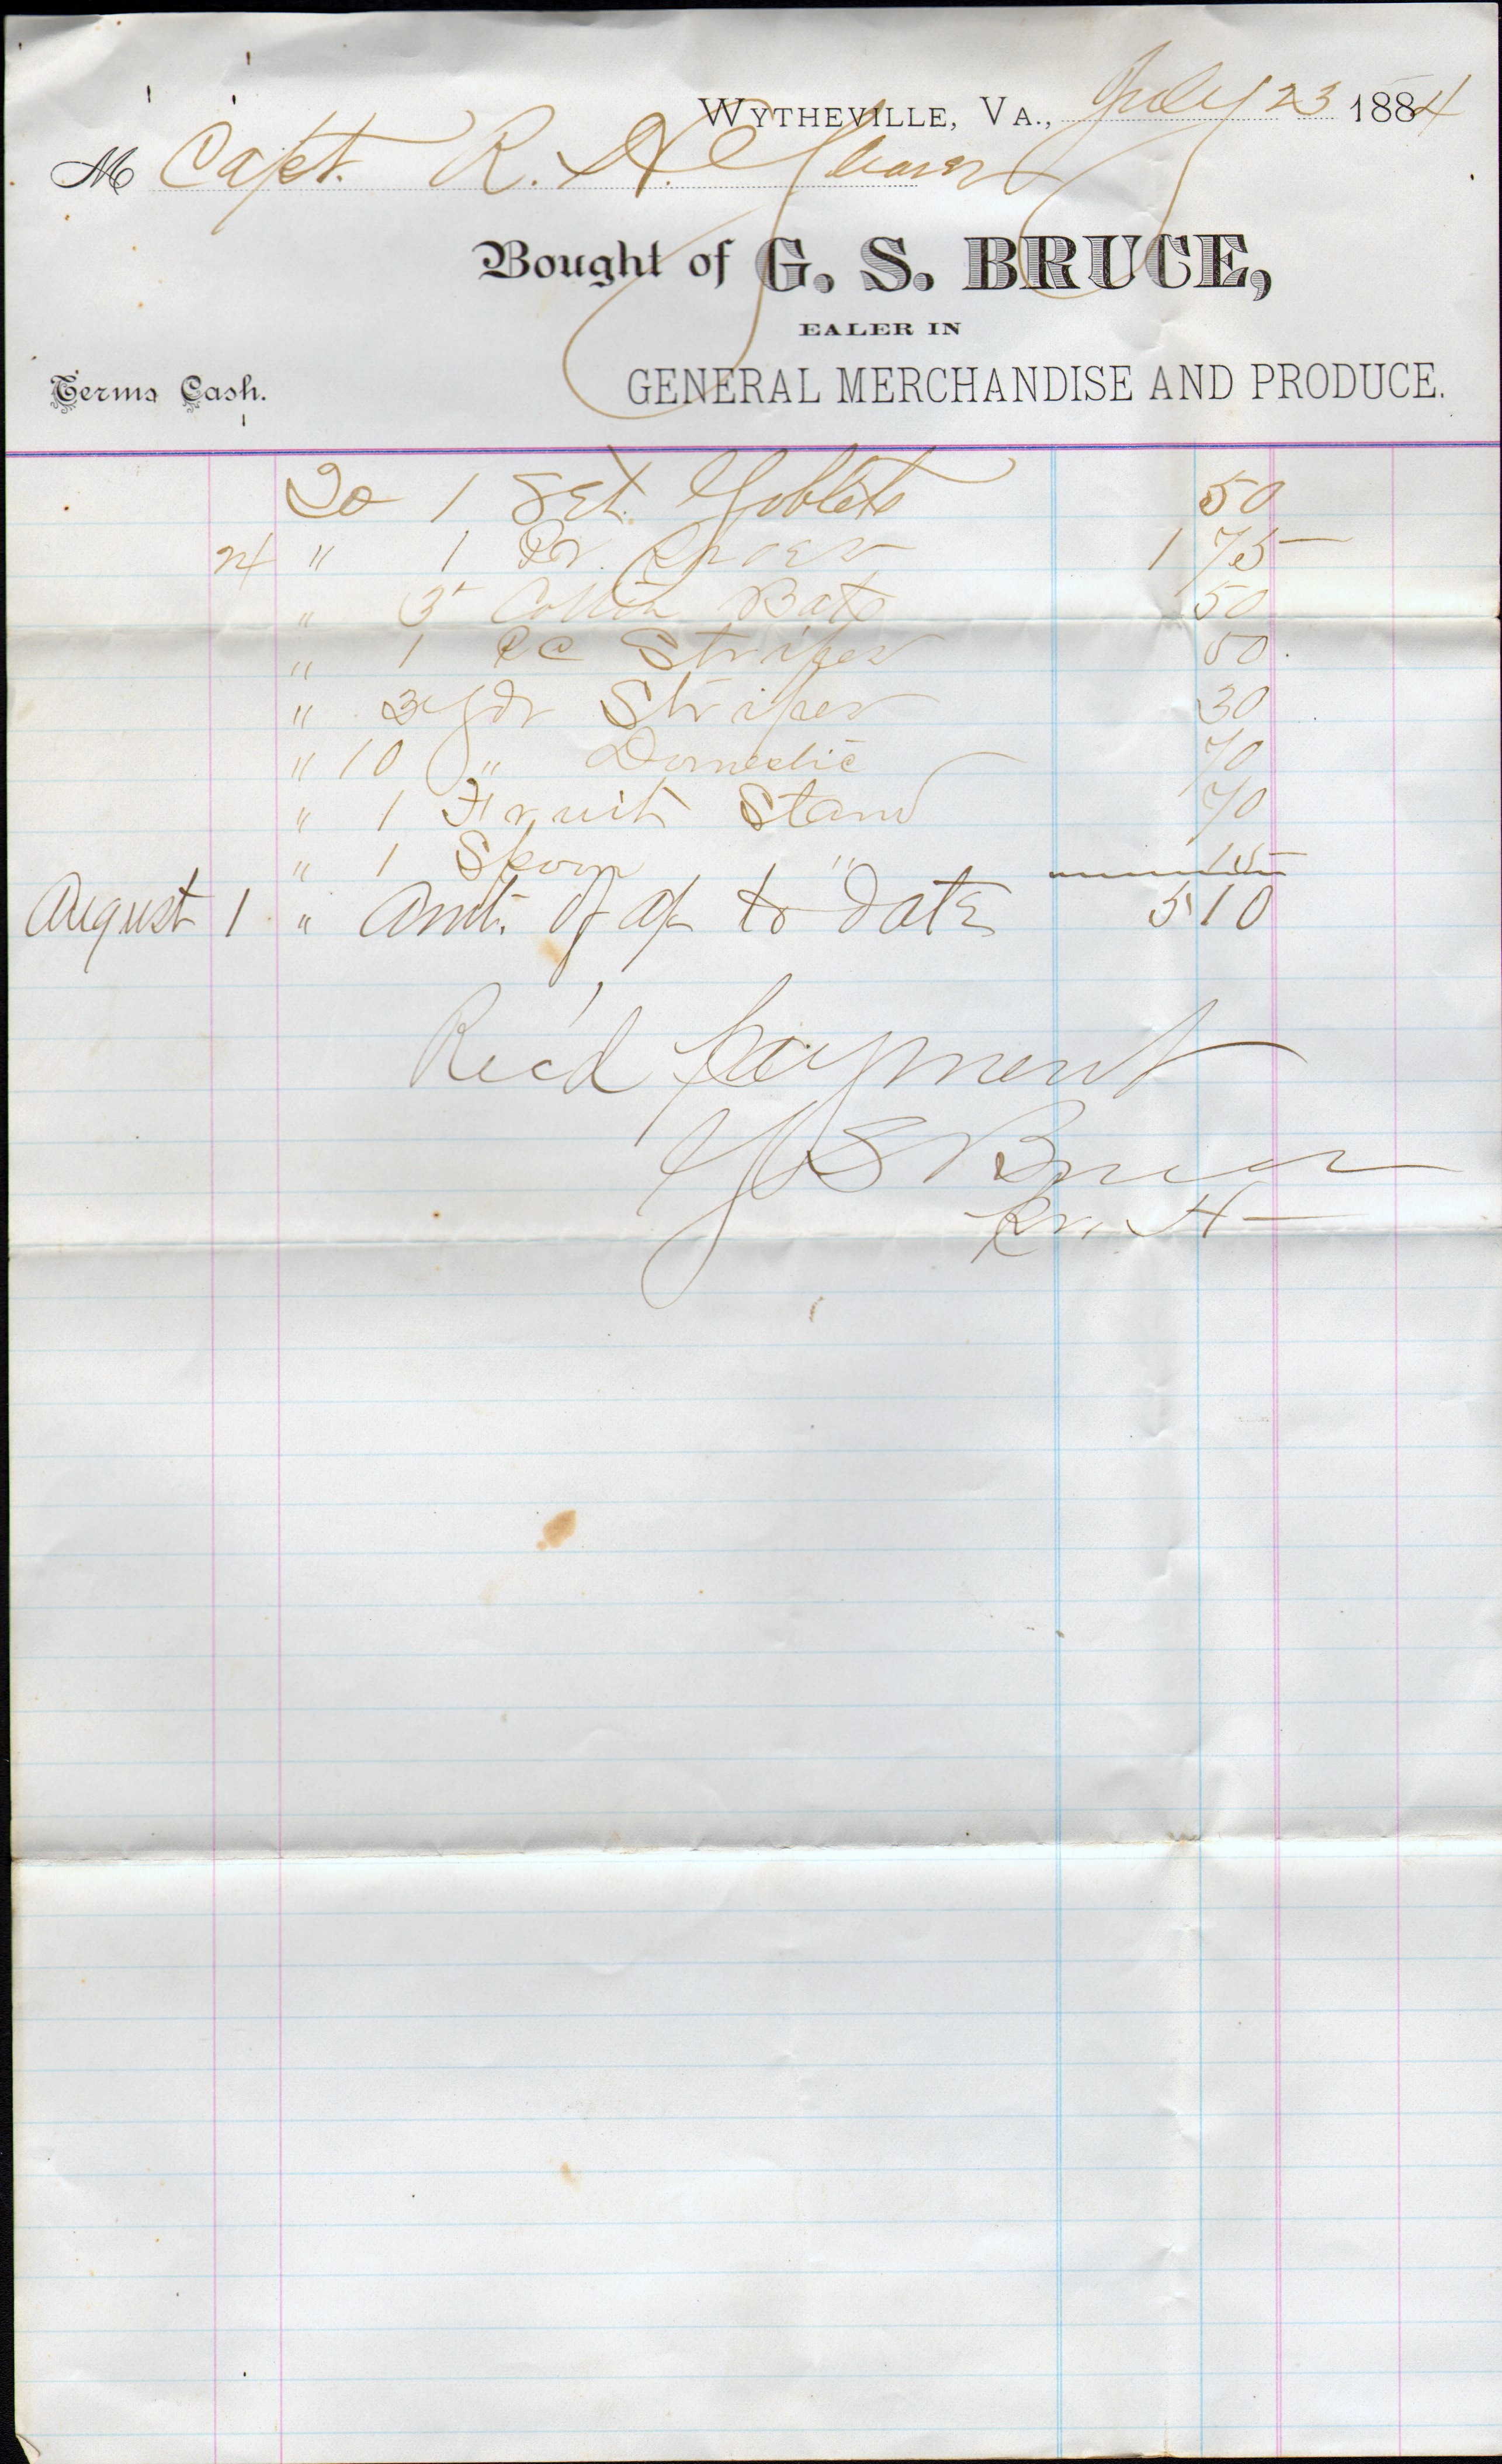 WYTHEVILLE, VA., July 23 1884
M Capt. R. H. Gleaves
Bought of G. S. BRUCE,
EALER IN
Terms Cash. GENERAL MERCHANDISE AND PRODUCE.
To 1 Set. Goblets 50
24 " 1 Pr. Shoes 1 75
" 3 Cotton Bats 50
" 1 Pc Stripes 50
" 3 yds Stripes 30
" 10 " Domestic 70
" 1 Fruit Stand 70
" 1 Spoon " 15
August 1 " Amt. of a/c to date 5 10
Rec'd payment
G S Bruce
H